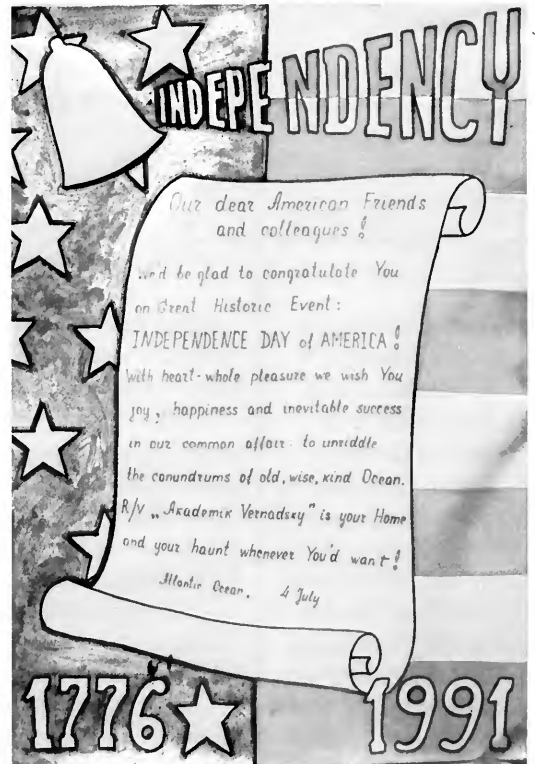 INDEPENDENCY
Our dear American Friends
and colleagues!
We'd be glad to congratulate You
on Great Historic Event:
INDEPENDENCE DAY of AMERICA!
With heart-whole pleasure we wish You
joy, happiness and inevitable success
in our common affair: to unriddle
the conundrums of old, wise, kind Ocean.
R/V „Akademik Vernadsky" is your Home
and your haunt whenever You'd want!
Atlantic Ocean, 4 July
1776 1991